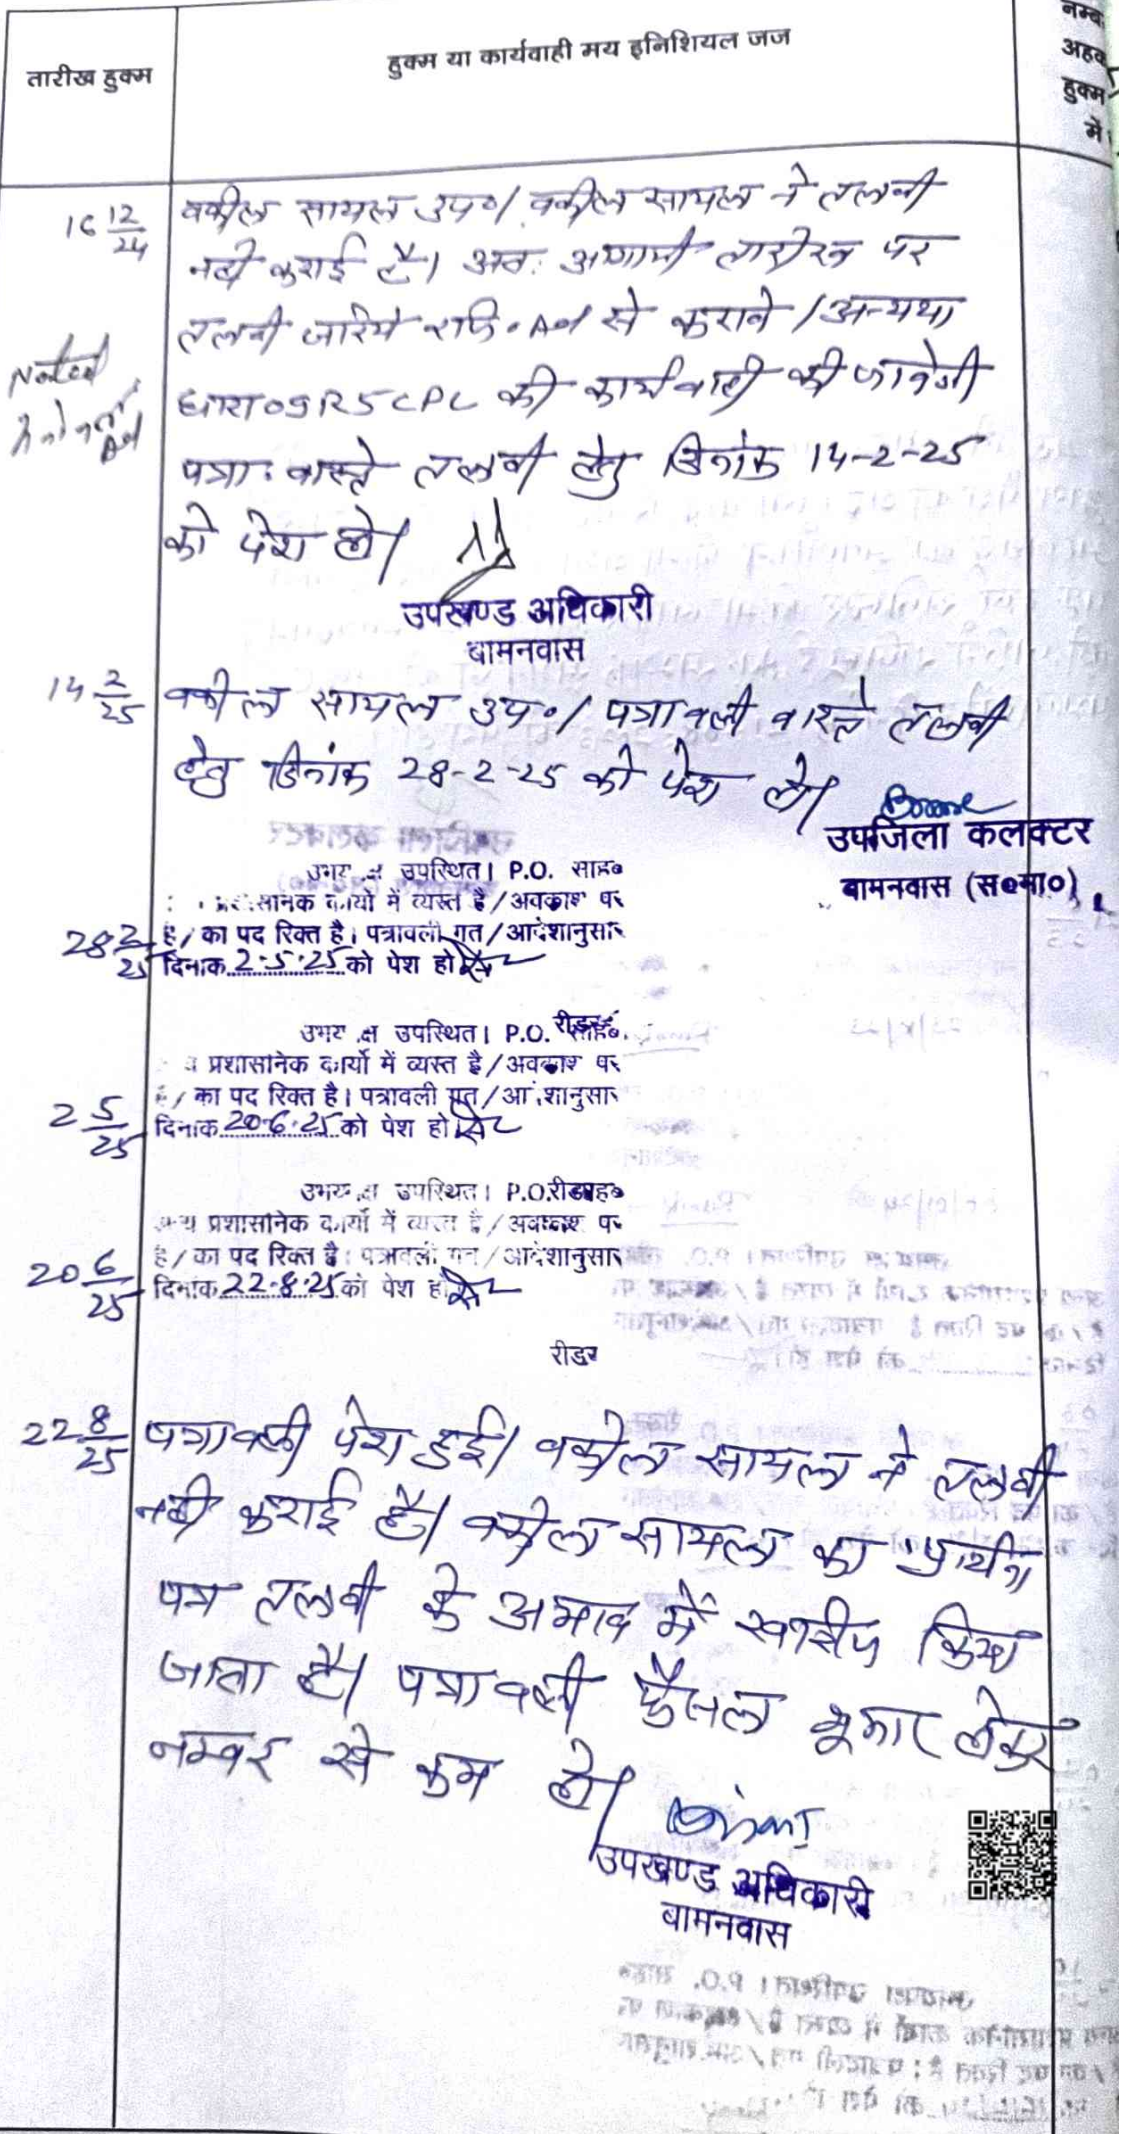 तारीख हुक्म
हुक्म या कार्यवाही मय इनिशियल जज
नम्ब
अहव
हुक्म
में
16 12/24
वकील सायल उप०। वकील सायल ने तलबी
नही कराई है। अतः आगामी तारीख पर
तलबी जरिये रजि. A.d से करावे। अन्यथा
Noted
धारा 09R5 CPC की कार्यवाही की जावेगी
पत्रा. वास्ते तलबी हेतु दिनांक 14-2-25
को पेश हो।
उपखण्ड अधिकारी
बामनवास
14 2/25
वकील सायल उप०। पत्रावली वास्ते तलबी
हेतु दिनांक 28-2-25 को पेश हो।
उपजिला कलक्टर
बामनवास (स०मा०)
उपस्थित। P.O. साह०
कार्यो में व्यस्त है/अवकाश पर
28 2/25
है/का पद रिक्त है। पत्रावली गत/आदेशानुसार
दिनांक 2.5.25 को पेश हो
रीडर
उपस्थित। P.O.
प्रशासनिक कार्यो में व्यस्त है/अवकाश पर
2 5/25
/का पद रिक्त है। पत्रावली गत/आदेशानुसार
दिनांक 20.6.25 को पेश हो
रीडर
उपस्थित। P.O.
प्रशासनिक कार्यो में व्यस्त है/अवकाश पर
20 6/25
है/का पद रिक्त है। पत्रावली गत/आदेशानुसार
दिनांक 22.8.25 को पेश हो
रीडर
22 8/25
पत्रावली पेश हुई। वकील सायल ने तलबी
नही कराई है। वकील सायल का प्रार्थना
पत्र तलबी के अभाव में खारीज किया
जाता है। पत्रावली फैसल शुमार होकर
नम्बर से कम हो।
उपखण्ड अधिकारी
बामनवास